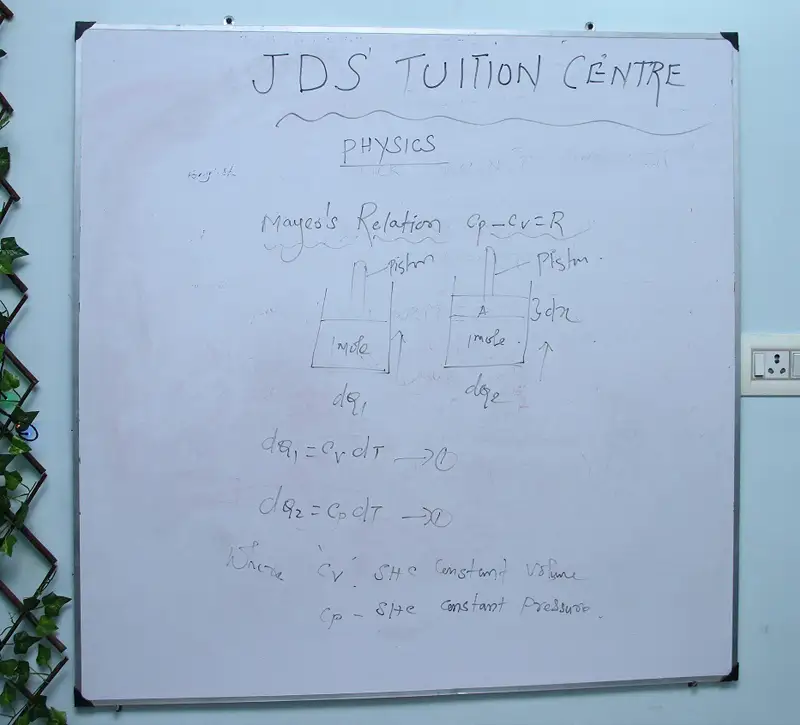 JDS' TUITION CENTRE
PHYSICS
Mayer's Relation Cp-Cv=R
piston
Piston.
A
}dx
1 mole
1 mole.
dQ1
dQ2
dQ1 = Cv dT → ①
dQ2 = Cp dT → ①
Where 'Cv'. SHC Constant Volume
Cp - SHC Constant Pressure.